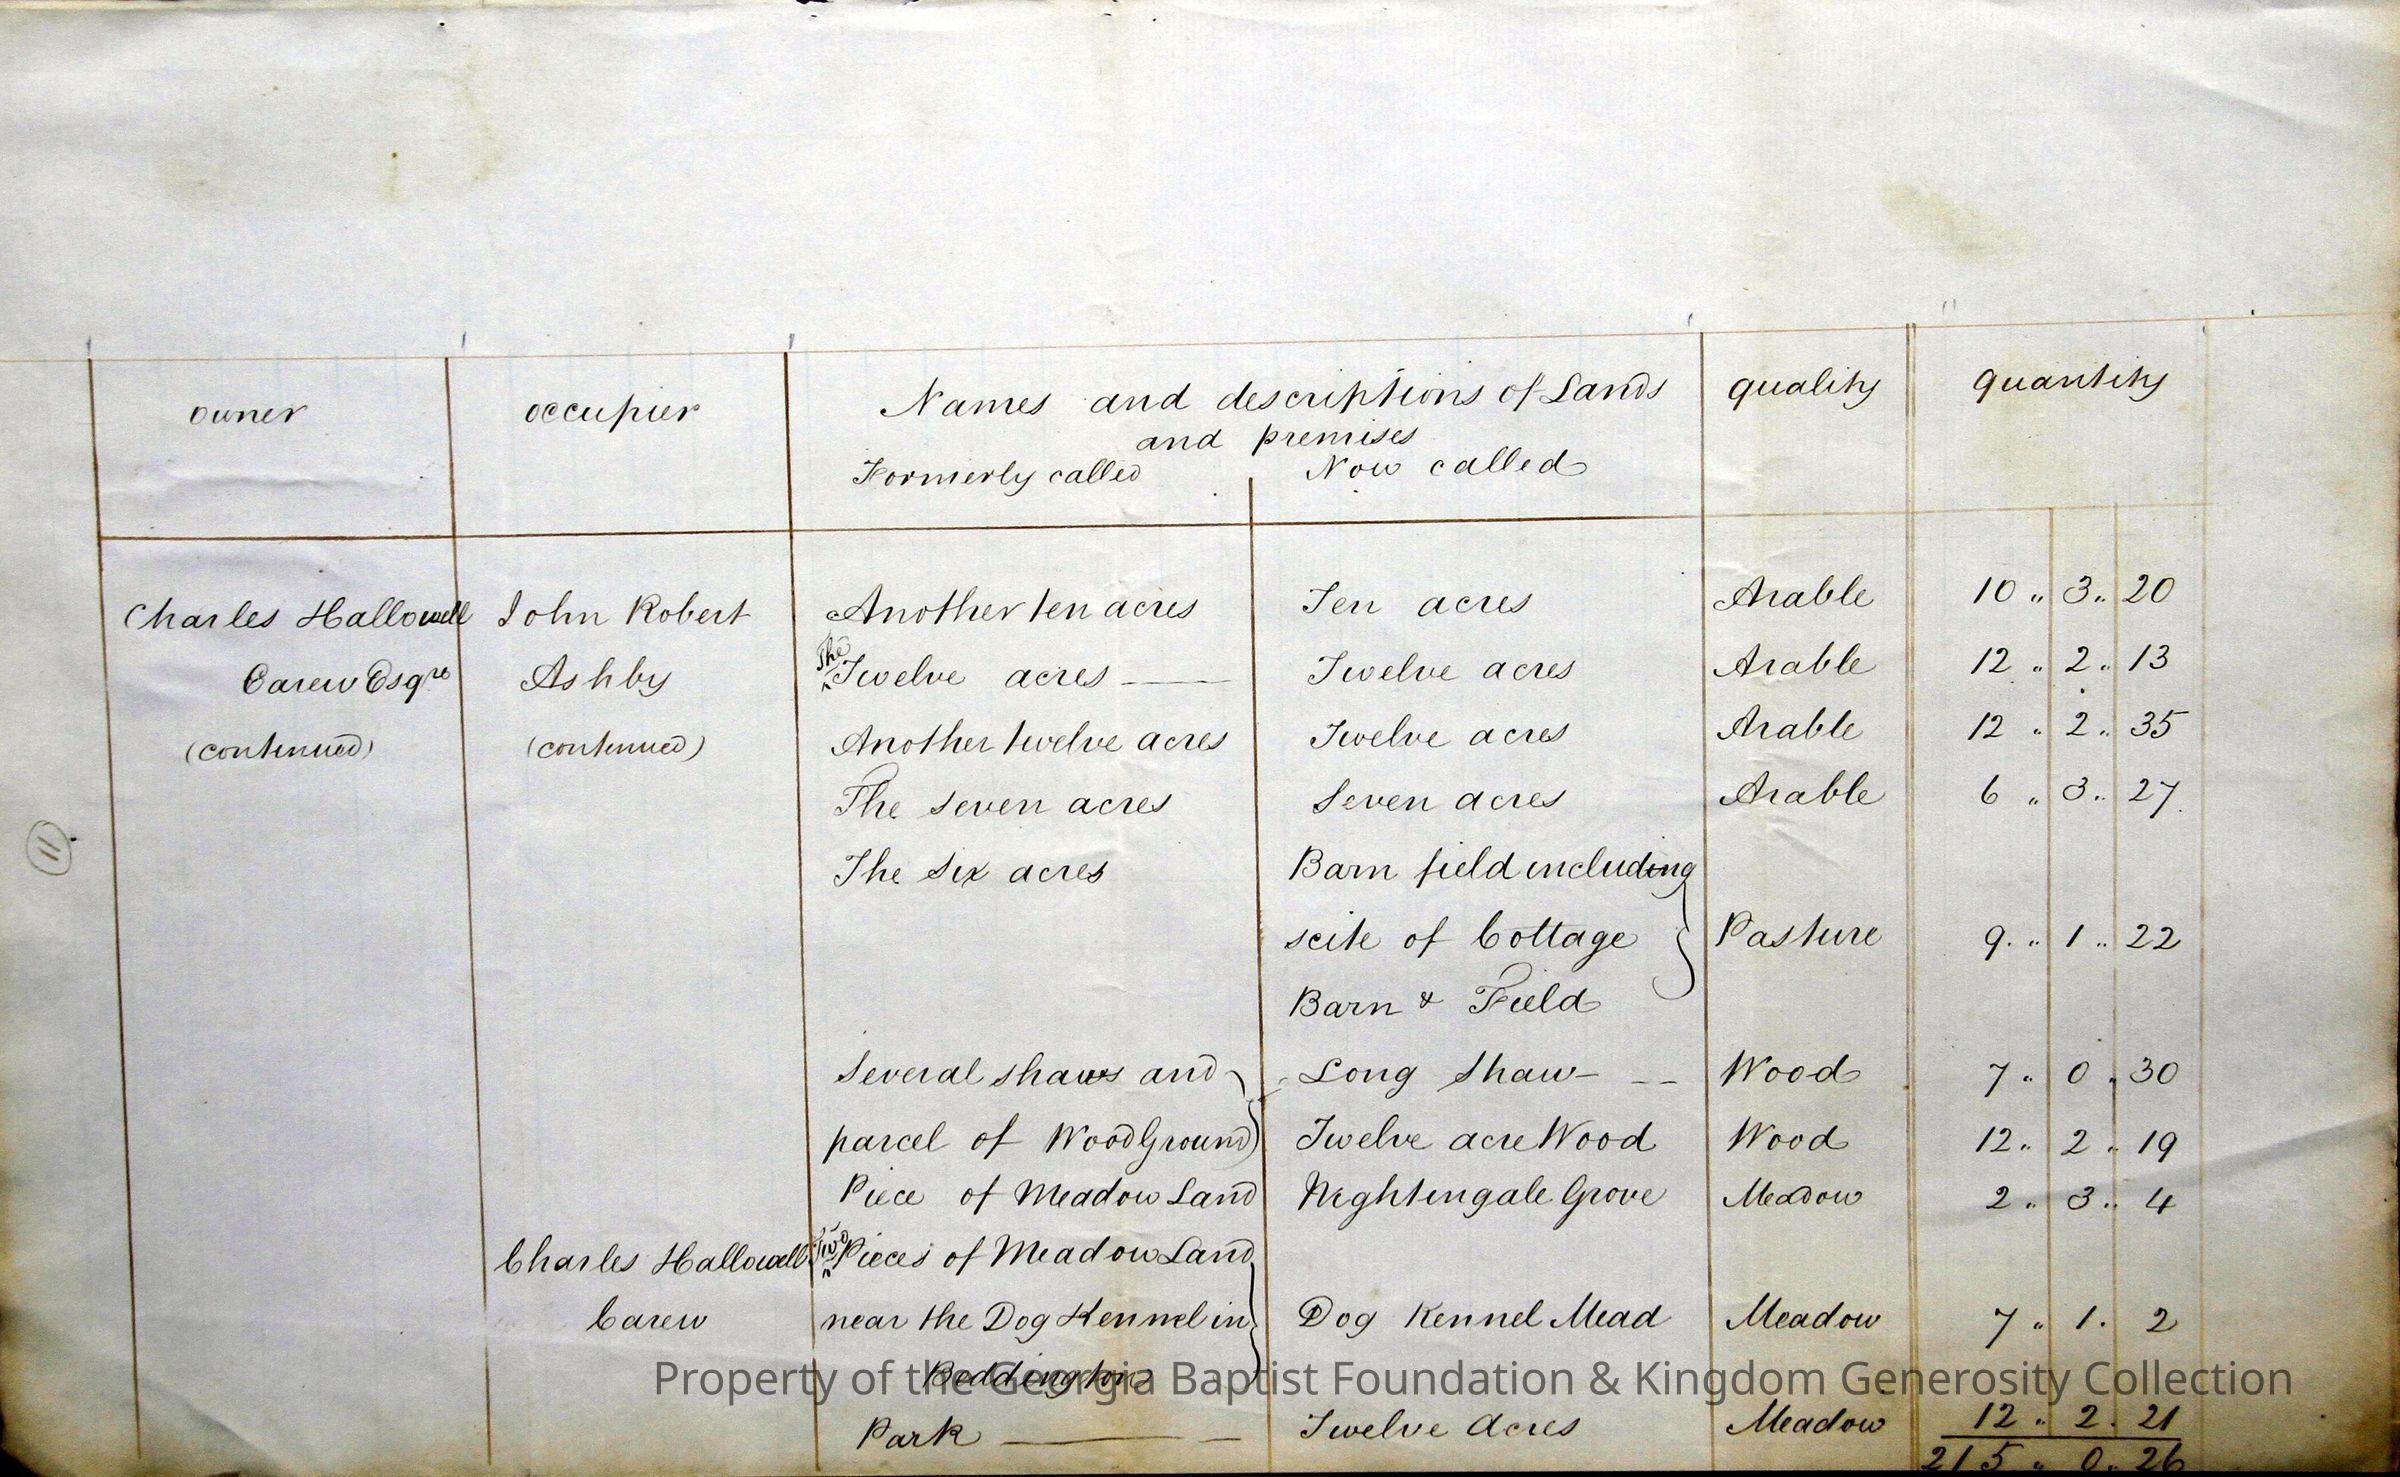 owner occupier Names and descriptions of Lands quality quantity
and premises
Formerly called Now called
Charles Hallowell John Robert Another ten acres Ten acres Arable 10 .. 3 .. 20
Carew Esqre Ashby The Twelve acres — Twelve acres Arable 12 .. 2 .. 13
(continued) (continued) Another twelve acres Twelve acres Arable 12 .. 2 .. 35
The seven acres Seven acres Arable 6 .. 3 .. 27
The six acres Barn field including
scite of Cottage Pasture 9 .. 1 .. 22
Barn & Field
11
Several shaws and Long Shaw — Wood 7 .. 0 .. 30
parcel of Wood Ground Twelve acre Wood Wood 12 .. 2 .. 19
Piece of Meadow Land Nightingale Grove Meadow 2 .. 3 .. 4
Charles Hallowell Two Pieces of Meadow Land
Carew near the Dog Kennel in Dog Kennel Mead Meadow 7 .. 1 . 2
Beddington
Property of the Georgia Baptist Foundation & Kingdom Generosity Collection
Park — Twelve Acres Meadow 12 .. 2 . 21
215 .. 0 .. 26